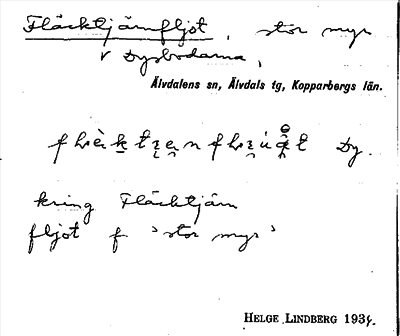 Fläcktjärnfljot, stor myr
V Dysbodarna,
Älvdalens sn, Älvdals tg, Kopparbergs län.
Dy.
kring Fläcktjärn
fljot f 'stor myr'
HELGE LINDBERG 193